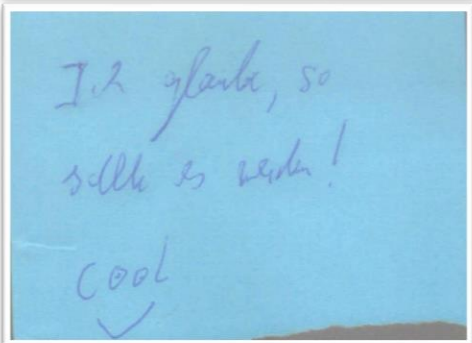 Ich glaube, so
sollte es werden!
cool